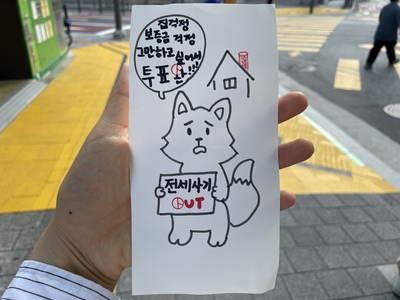 집걱정
보증금 걱정
그만하고 싶어서
투표한다!!
전세사기
OUT